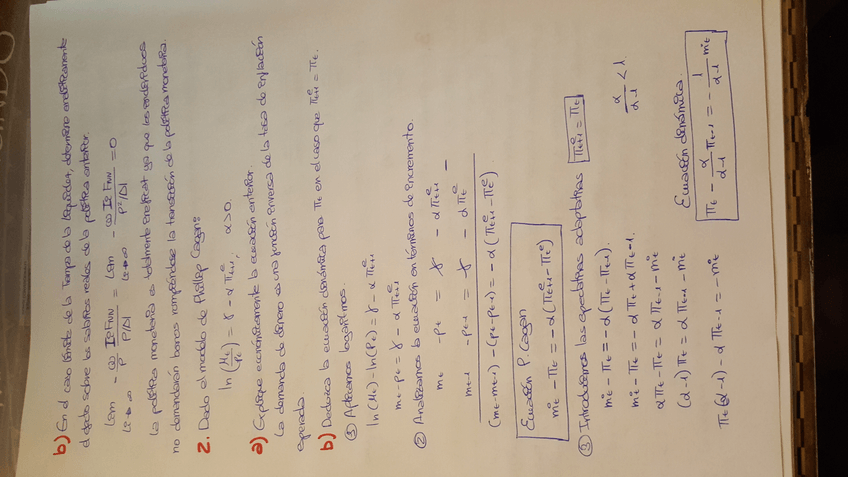 b) En el caso límite de la Trampa de la Liquidez, determine analíticamente
el efecto sobre los salarios reales de la política anterior.
Lim - ω I² FNN / P P/DI = Lim - ω I² FNN / P²/DI = 0
Li→∞ Li→∞
La política monetaria es totalmente ineficaz ya que los individuos
no demandarán bonos rompiéndose la transmisión de la política monetaria.
2. Dado el modelo de Phillip Cagan:
ln(Mt/Pt) = γ - απᵉt+1, α>0.
a) Explique económicamente la ecuación anterior.
La demanda de dinero es una función inversa de la tasa de inflación
esperada
b) Deduzca la ecuación dinámica para πt en el caso que πᵉt+1 = πt.
① Aplicamos logaritmos.
ln(Mt) - ln(Pt) = γ - απᵉt+1
mt - pt = γ - απᵉt+1
② Analizamos la ecuación en términos de incremento.
mt - pt = γ - απᵉt+1
mt-1 - pt-1 = γ - απᵉt -
(mt - mt-1) - (pt - pt-1) = -α(πᵉt+1 - πᵉt)
Ecuación P. Cagan
ṁt - πt = -α(πᵉt+1 - πᵉt)
③ Introducimos las expectativas adaptativas πᵉt+1 = πt
ṁt - πt = -α(πt - πt-1)
ṁt - πt = -απt + απt-1.
απt - πt = απt-1 - ṁt
(α-1)πt = απt-1 - ṁt
πt(α-1) - απt-1 = -ṁt
α/α-1 < 1.
Ecuación dinámica.
πt - α/α-1 πt-1 = - 1/α-1 ṁt